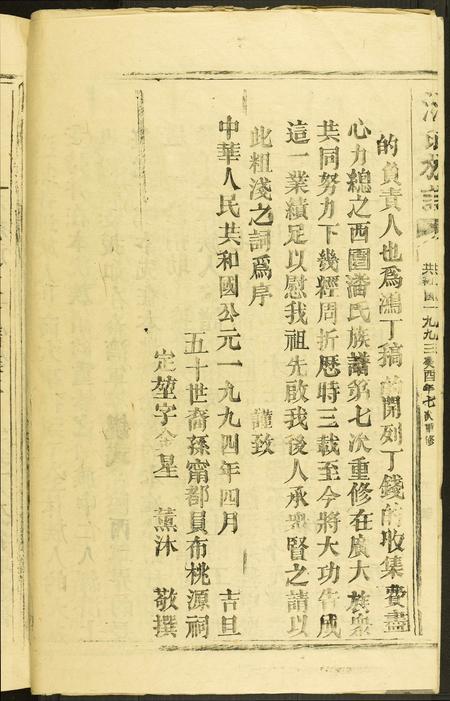 的負責人也爲鴻丁稿的開列丁錢的收集費盡
心力總之西團潘氏族譜第七次重修在廣大族衆
共同努力下幾經周折歷時三載至今將大功告成
這一業績足以慰我祖先啟我後人承衆賢之請以
此粗淺之詞爲序 謹致
中華人民共和國公元一九九四年四月 吉旦
五十世裔孫甯都員布桃源祠
定堃字金星 薰沐 敬撰
氏族譜
共和國一九九三癸酉年七次重修